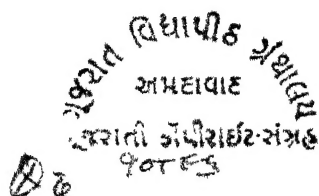 ગુજરાત વિદ્યાપીઠ ગ્રંથાલય
અમદાવાદ
ગુજરાતી કૉપીરાઈટ-સંગ્રહ